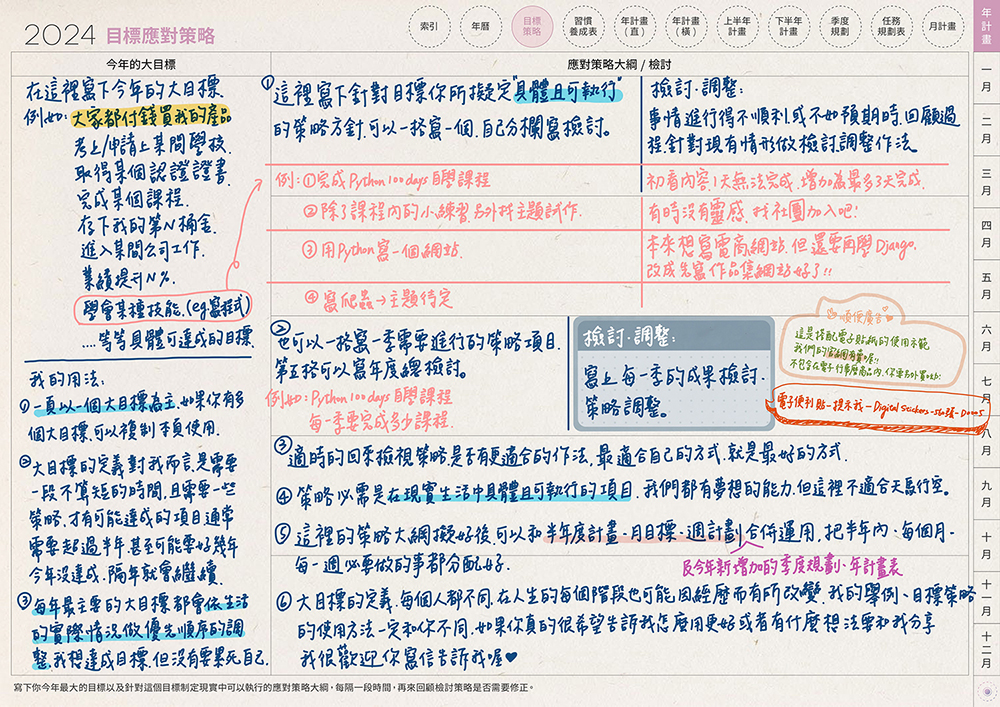 2024 目標應對策略
索引
年曆
目標
策略
習慣
養成表
年計畫
(直)
年計畫
(橫)
上半年
計畫
下半年
計畫
季度
規劃
任務
規劃表
月計畫
年計畫
一月
二月
三月
四月
五月
六月
七月
八月
九月
十月
十一月
十二月
今年的大目標
應對策略大綱 / 檢討
在這裡寫下今年的大目標
例如:大家都付錢買我的產品
考上/申請上某間學校.
取得某個認證證書.
完成某個課程.
存下我的第N桶金.
進入某間公司工作.
業績提升N%.
學會某種技能.(eg.寫程式)
....等等具體可達成的目標.
我的用法:
①一頁以一個大目標為主.如果你有多
個大目標.可以複制本頁使用.
②大目標的定義對我而言.是需要
一段不算短的時間.且需要一些
策略.才有可能達成的項目通常
需要超過半年.甚至可能要好幾年
今年沒達成.隔年就會繼續.
③每年最主要的大目標都會依生活
的實際情況做優先順序的調
整.我想達成目標.但沒有要累死自己.
①這裡寫下針對目標你所擬定"具體且可執行"
的策略方針.可以一格寫一個.自己分欄寫檢討。
檢討·調整:
事情進行得不順利.或不如預期時.回顧過
程.針對現有情形做檢討.調整作法.
例:①完成Python 100 days 自學課程
初看內容.1天無法完成.增加為最多3天完成.
②除了課程內的小練習.另外找主題試作.
有時沒有靈感.找社團加入吧!
③用Python寫一個網站.
本來想寫電商網站.但還要再學Django.
改成先寫作品集網站好了!!
④寫爬蟲→主題待定
②也可以一格寫一季需要進行的策略項目.
第五格可以寫年度總檢討。
例如:Python 100 days 自學課程
每一季要完成多少課程.
檢討·調整:
寫上每一季的成果檢討.
策略調整。
順便廣告
這是搭配電子貼紙的使用示範
我們的官網有賣喔!!
不包含在電子行事曆商品內.你要另外買的.
電子便利貼-提示我-Digital Stickers-
③適時的回來檢視策略.是否有更適合的作法.最適合自己的方式.就是最好的方式.
④策略必需是在現實生活中具體且可執行的項目.我們都有夢想的能力.但這裡不適合天馬行空。
⑤這裡的策略大綱擬好後.可以和半年度計畫-月目標-週計劃合併運用.把半年內.每個月.
每一週必要做的事都分配好.
及今年新增加的季度規劃、年計畫表
⑥大目標的定義.每個人都不同.在人生的每個階段也可能因經歷而有所改變.我的舉例、目標策略
的使用方法一定和你不同.如果你真的很希望告訴我怎麼用更好或者有什麼想法要和我分享
我很歡迎你寫信告訴我喔♥
寫下你今年最大的目標以及針對這個目標制定現實中可以執行的應對策略大綱,每隔一段時間,再來回顧檢討策略是否需要修正。